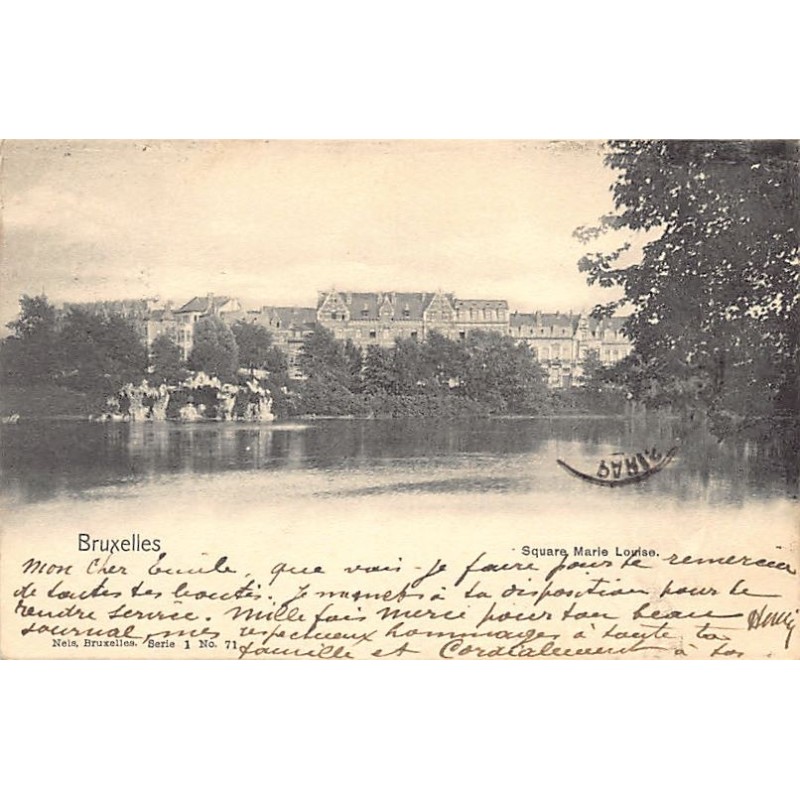 PARIS
Bruxelles
Square Marie Louise.
Mon cher Emile, que vais-je faire pour te remercier
de toutes tes bontés. Je me mets à ta disposition pour te
rendre service. Mille fois merci pour ton beau
journal, mes respectueux hommages à toute ta
famille et Cordialement à toi.
Henri
Nels, Bruxelles. Serie 1 No. 71